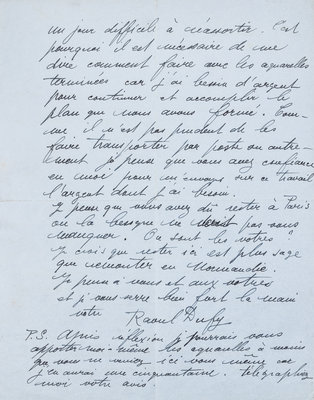 un jour difficile à réassortir. C'est
pourquoi il est nécessaire de me
dire comment faire avec les aquarelles
terminées car j'ai besoin d'argent
pour continuer et accomplir le
plan que nous avons formé. Com-
me il n'est pas prudent de les
faire transporter par poste ou autre-
ment je pense que vous avez confiance
en moi pour m'envoyer sur ce travail
l'argent dont j'ai besoin.
Je pense que vous avez dû rester à Paris
où la besogne ne doit pas vous
manquer. Où sont les vôtres
Je crois que rester ici est plus sage
que remonter en Normandie.
Je pense à vous et aux vôtres
et je vous serre bien fort la main
votre
Raoul Dufy
P.S. Après réflexion je pourrais vous
apporter moi-même les aquarelles à moins
que vous ne veniez ici vous même car
j'en aurai une cinquantaine. télégraphiez
moi votre avis